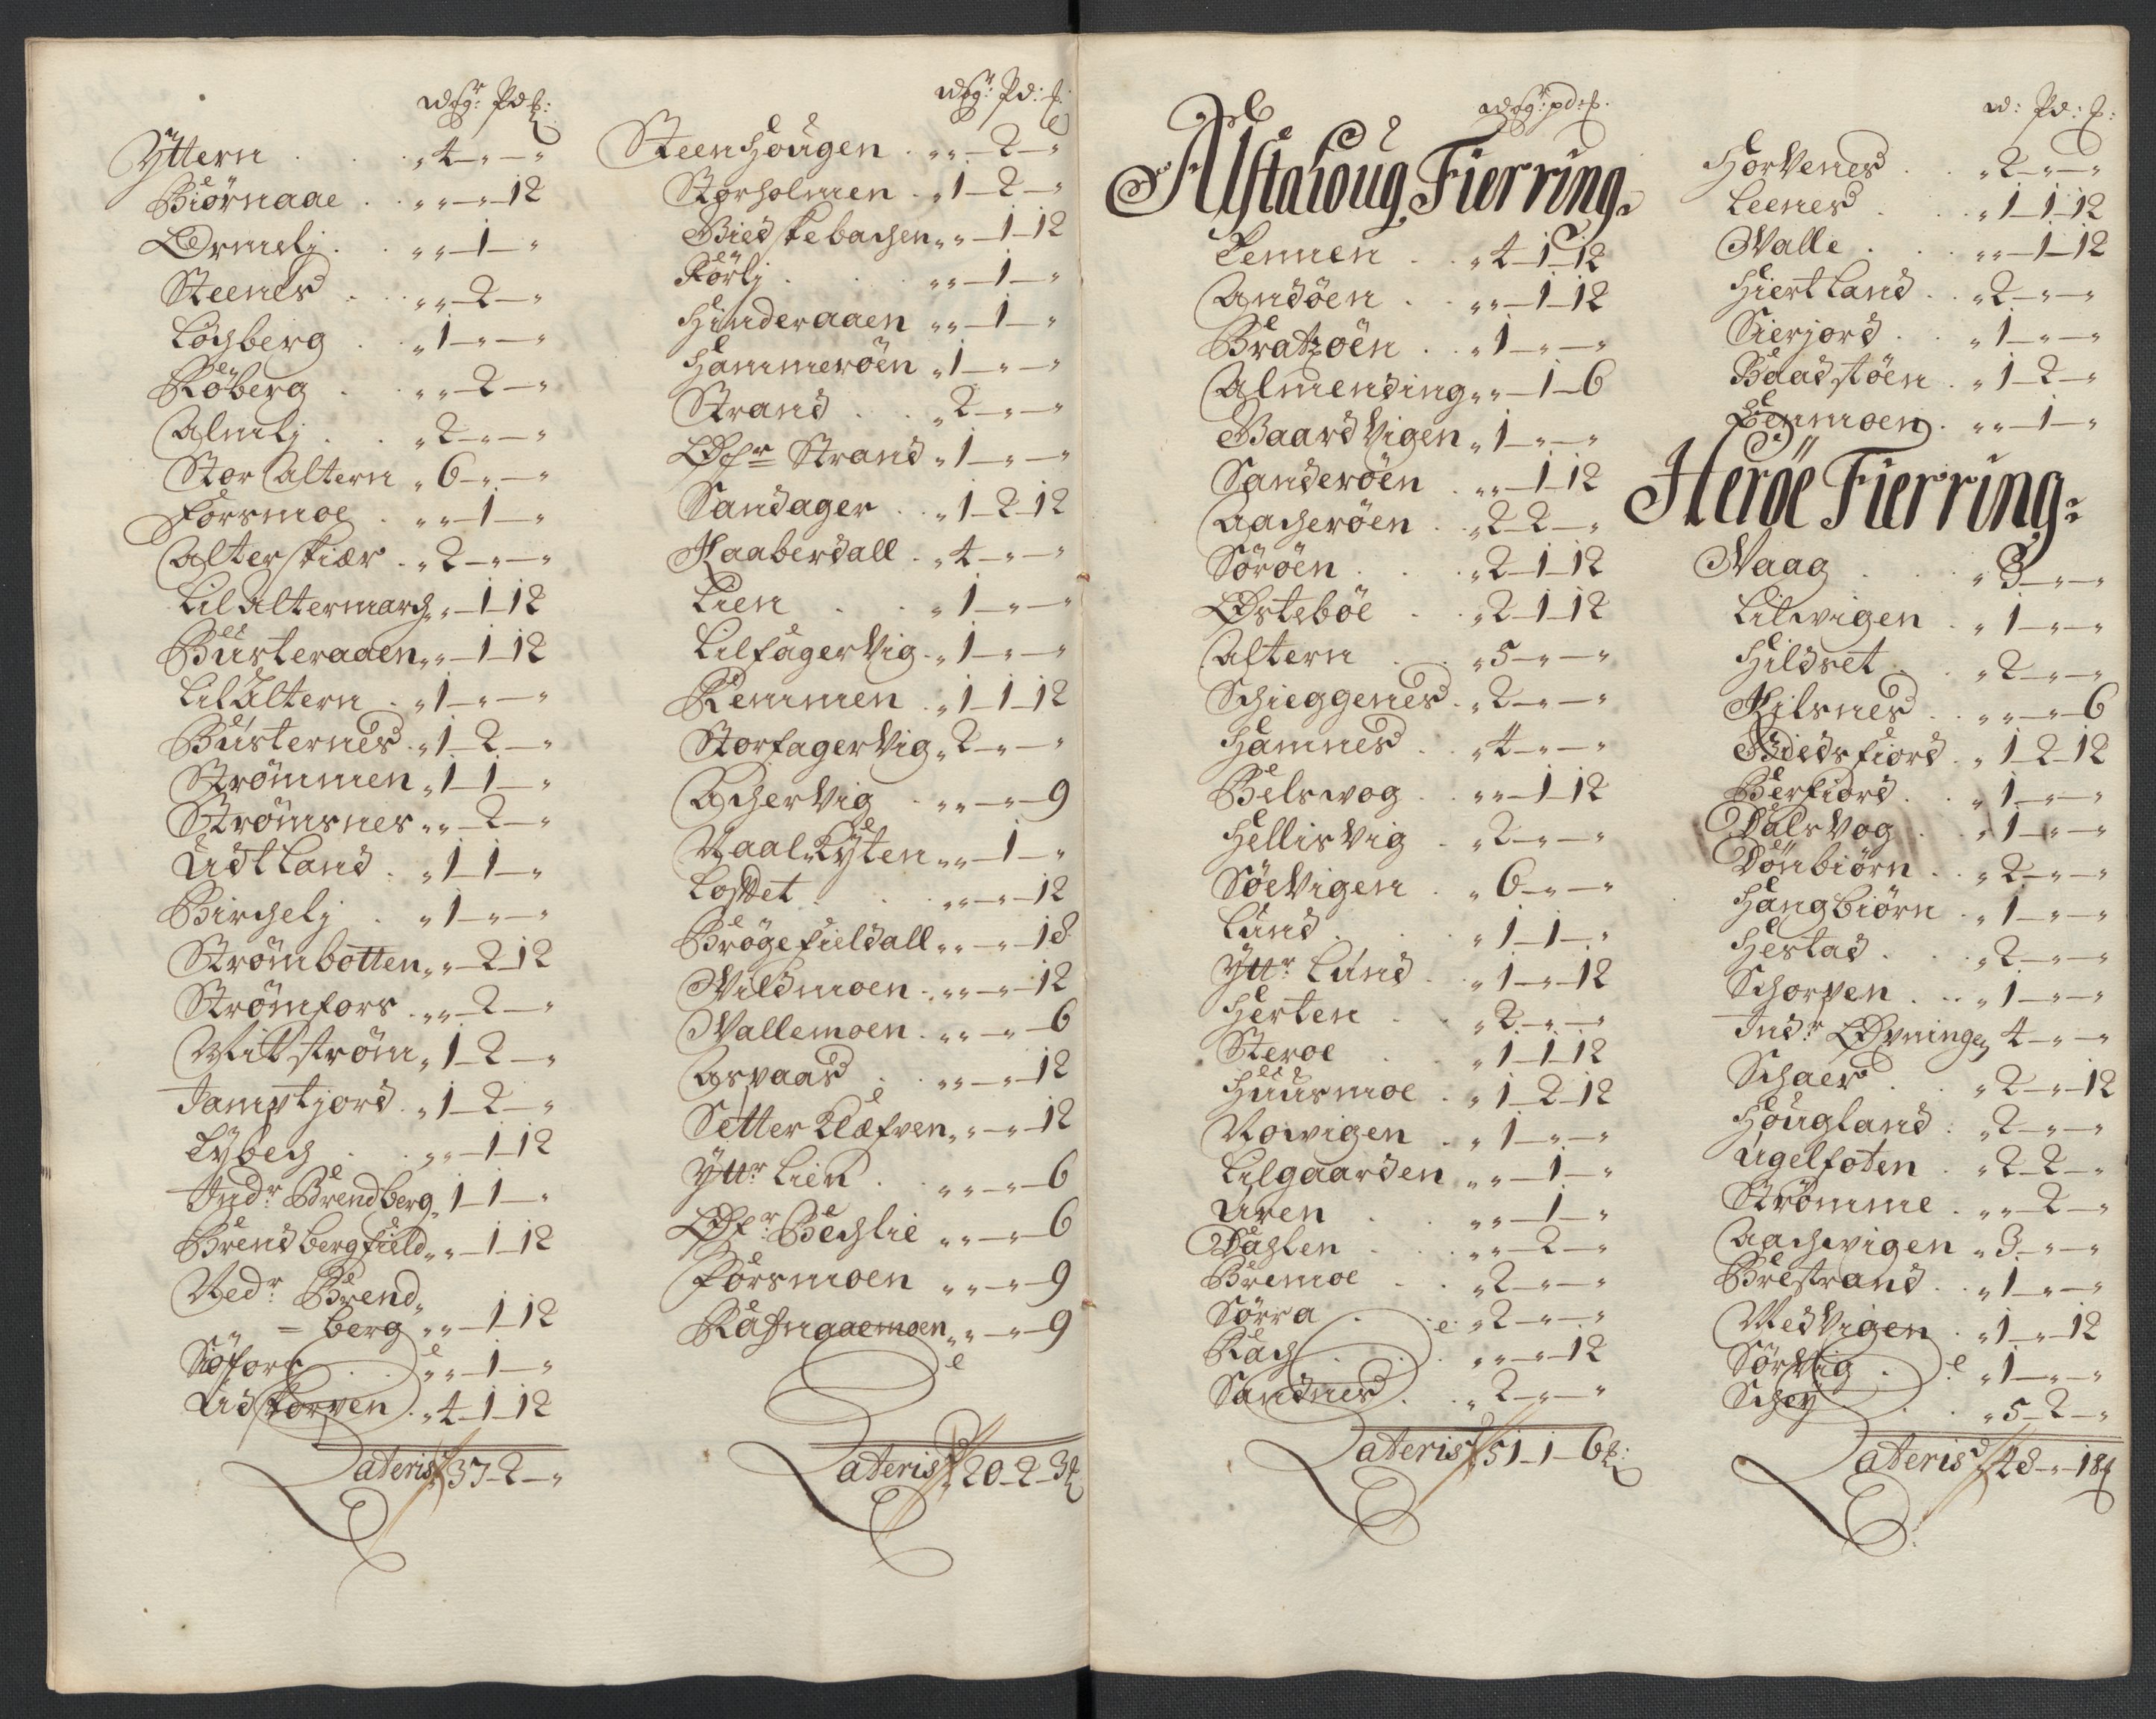 wogr: Pd ꝑ:
Yttern . . . „ 4 — „ — „
Biörnaae . . „ „ — „ — 12
Ørmelj . . „ „ — 1 — „
Steenes . . „ „ — 2 — „
Løchberg . . „ 1 — „ — „
Röberg . . „ „ — 2 — „
Almlj . . „ 2 — „ — „
Stor Altern „ 6 — „ — „
Forsmoe . . „ „ — 1 — „
Alterskiær . „ 2 — „ — „
Lil Altermarch „ „ — 1 — 12
Büsteraaen „ „ — 1 — 12
Lil Altern . „ 1 — „ — „
Büsternes . „ 1 — 2 — „
Strömmen „ 1 — 1 — „
Strömsnes „ „ — 2 — „
Udtland . „ 1 — 1 — „
Birchelj . „ 1 — „ — „
Strömbotten „ „ — 2 — 12
Strömfors . „ „ — 2 — „
Mitström „ 1 — 2 — „
Jamptjord . „ 1 — 2 — „
Lybech . . „ „ — 1 — 12
Indr Brendberg „ 1 — 1 — „
Brendbergfield „ „ — 1 — 12
Nedr Brend „
„ = berg „ „ — 1 — 12
Söfors . . „ „ — 1 — „
Udskorpen . „ 4 — 1 — 12
Lateris 37 — 2 — „
wogr: Pd: ꝑ:
Steenhougen . „ „ — 2 — „
Storholmen . „ 1 — 2 — „
Biedskebachen „ „ — 1 — 12
Förlj . . „ „ — 1 — „
Hinderaaen „ „ — 1 — „
Hammeröen „ 1 — „ — „
Strand . . „ 2 — „ — „
Øfr Strand „ 1 — „ — „
Sandager . . „ 1 — 2 — 12
Kaaberdall . „ 4 — „ — „
Lien . . „ 1 — „ — „
LilfagerVig . „ 1 — „ — „
Remmen . „ 1 — 1 — 12
StorfagerVig „ 2 — „ — „
AcherVig . „ „ — „ — 9
Naal Ryten „ „ — 1 — „
Lofftet . . „ „ — „ — 12
Brögefieldall „ „ — „ — 18
Vildmoen . „ „ — „ — 12
Vallemoen . „ „ — „ — 6
Aspaas . . „ „ — „ — 12
Setter Klæfven „ „ — „ — 12
Yttr Lien . „ „ — „ — 6
Øfr Bechlie „ „ — „ — 6
Forsmoen „ „ — „ — 9
Rafnaaemoen „ „ — „ — 9
Lateris 20 — 2 — 3 ꝑ
wogr: pd: ꝑ.
Alstahoug Fierring.
Tennen . „ 4 — 1 — 12
Andöen . . „ „ — 1 — 12
Bratzöen . . „ 1 — „ — „
Almending „ „ — 1 — 6
BaardVigen „ 1 — „ — „
Sanderöen . „ „ — 1 — 12
Aacheröen . „ 2 — 2 — „
Söröen . . „ 2 — 1 — 12
Østeböe . „ 2 — 1 — 12
Aftern . . „ 5 — „ — „
Schieggenes . „ 2 — „ — „
Hamnes . „ 4 — „ — „
Belsvog . . „ „ — 1 — 12
HellisVig . „ 2 — „ — „
SöeVigen . „ 6 — „ — „
Lund . . „ 1 — 1 — „
Yttr Lund . „ 1 — „ — 12
Herten . . „ 2 — „ — „
Steroe . . „ 1 — 1 — 12
Huusmoe . „ 1 — 2 — 12
Novigen . „ 1 — „ — „
Lilgaarden „ „ — 1 — „
Uren . . „ „ — 1 — „
Dahlen . . „ „ — 2 — „
Bremoe . . „ 2 — „ — „
Sörra . . „ 2 — „ — „
Rach . . . „ „ — „ — 12
Sandnes . . „ 2 — „ — „
Lateris 51 — 1 — 6 ꝑ:
w: Pd: ꝑ:
Horvenes . . „ 2 — „ — „
Leenes . . „ 1 — 1 — 12
Valle . . „ „ — 1 — 12
Hiertland . . „ 2 — „ — „
Sierjord . . „ 1 — „ — „
Baadstöen . „ 1 — 2 — „
Femmoen . „ „ — 1 — „
Heröe Fierring:
Vaag . . „ 3 — „ — „
Lilvigen . „ 1 — „ — „
Hildset . „ 2 — „ — „
Kilsnes . . „ „ — „ — 6
Bledsfiord . „ 1 — 2 — 12
Berfiord . . „ 1 — „ — „
DalsVog . . „ 1 — „ — „
Dönbiörn . . „ 2 — „ — „
Hangbiörn . „ 1 — „ — „
Hestad . . „ 2 — „ — „
Schorpen . . „ 1 — „ — „
Indr Øvningen 4 — „ — „
Schaer . . „ 2 — „ — 12
Hougland . „ 2 — „ — „
Ugelfoten . „ 2 — 2 — „
Strömme . „ „ — 2 — „
Aachvigen „ 3 — „ — „
Brestrand . . „ 1 — „ — „
NedVigen . „ 1 — „ — 12
SörVig . . „ 1 — „ — „
Schey . . „ 5 — 2 — „
Lateris 48 — „ — 18 ꝑ